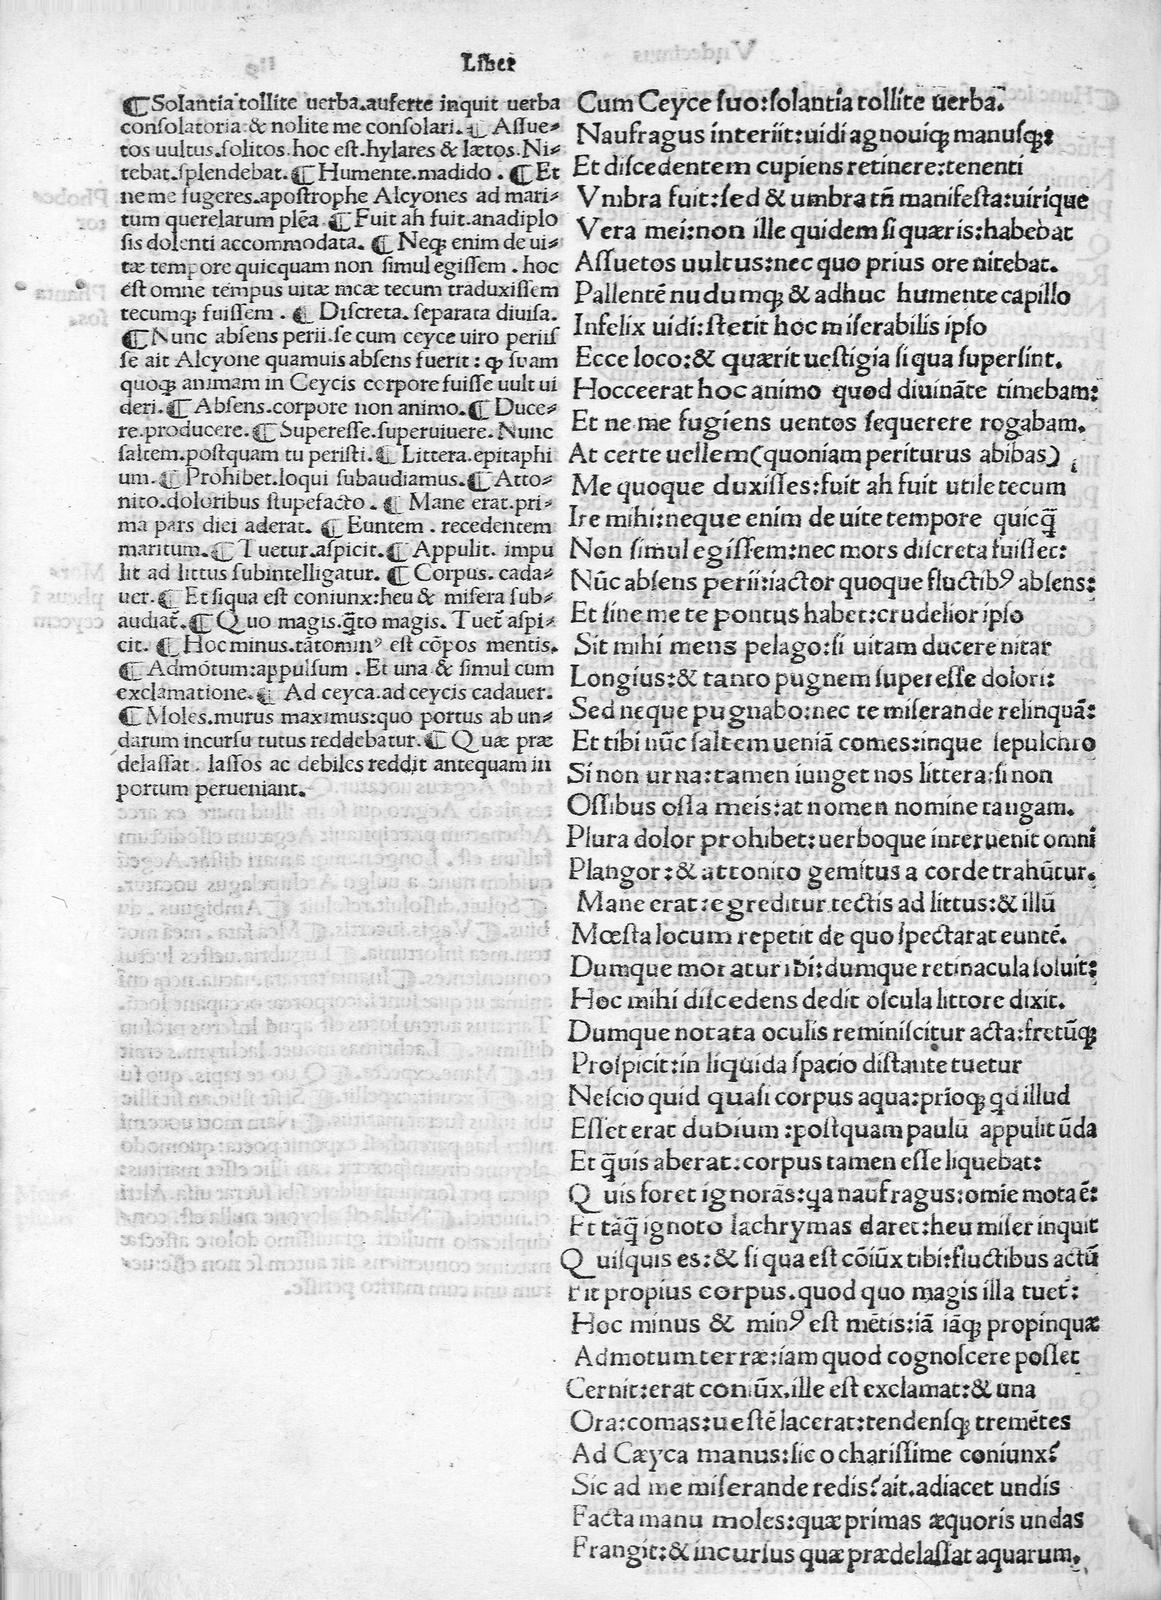 Liber
¶Solantia tollite uerba.auferte inquit uerba
conſolatoria & nolite me conſolari.¶ Aſſue⸗
tos uultus.ſolitos.hoc eſt.hylares & lætos.Ni⸗
tebat.ſplendebat.¶Humente.madido . ¶Et
ne me fugeres.apoſtrophe Alcyones ad mari⸗
tum querelarum plēa .¶ Fuit ah fuit.anadiplo
ſis dolenti accommodata. ¶Neqꝫ enim de ui⸗
tæ tempore quicquam non ſimul egiſſem . hoc
eſt omne tempus uitæ meæ tecum traduxiſſem
tecumqꝫ fuiſſem . ¶ Diſcreta. ſeparata diuiſa.
¶Nunc abſens perii.ſe cum ceyce uiro periiſ
ſe ait Alcyone quamuis abſens fuerit : ꝙ ſuam
quoqꝫ animam in Ceycis corpore fuiſſe uult ui
deri.¶ Abſens.corpore non animo.¶ Duce⸗
re.producere.¶ Supereſſe.ſuperuiuere. Nunc
ſaltem.poſtquam tu periſti.¶ Littera.epitaphi
um.¶ Prohibet.loqui ſubaudiamus.¶ Atto⸗
nito.doloribus ſtupefacto . ¶ Mane erat.pri⸗
ma pars diei aderat. ¶ Euntem . recedentem
maritum.¶ Tuetur.aſpicit.¶ Appulit. impu
lit ad littus ſubintelligatur. ¶ Corpus. cada⸗
uer.¶ Et ſiqua eſt coniunx:heu & miſera ſub⸗
audiat̄.¶ Quo magis.q̄to magis. Tuet̄ aſpi⸗
cit. ¶ Hoc minus.tātominꝰ eſt cōpos mentis.
¶ Admotum:appulſum . Et una & ſimul cum
exclamatione.¶ Ad ceyca.ad ceycis cadauer.
¶ Moles.murus maximus:quo portus ab un⸗
darum incurſu tutus reddebatur.¶ Quæ præ
delaſſat. laſſos ac debiles reddit antequam in
portum perueniant.
Cum Ceyce ſuo:ſolantia tollite uerba.
Naufragus interiit:uidi agnouiqꝫ manuſqꝫ:
Et diſcedentem cupiens retinere:tenenti
Vmbra fuit:ſed & umbra tn̄ manifeſta:uirique
Vera mei:non ille quidem ſi quæris:habebat
Aſſuetos uultus:nec quo prius ore nitebat.
Pallentē nudumqꝫ & adhuc humente capillo
Infelix uidi:ſtetit hoc miſerabilis ipſo
Ecce loco:& quærit ueſtigia ſi qua ſuperſint.
Hocceerat hoc animo quod diuināte timebam:
Et ne me fugiens uentos ſequerere rogabam.
At certe uellem(quoniam periturus abibas)
Me quoque duxiſſes:fuit ah fuit utile tecum
Ire mihi:neque enim de uite tempore quicq̄
Non ſimul egiſſem:nec mors diſcreta fuiſſet:
Nūc abſens perii:iactor quoque fluctibꝰ abſens:
Et ſine me te pontus habet:crudelior ipſo
Sit mihi mens pelago:ſi uitam ducere nitar
Longius:& tanto pugnem ſupereſſe dolori:
Sed neque pugnabo:nec te miſerande relinquā:
Et tibi nūc ſaltem ueniā comes:inque ſepulchro
Si non urna:tamen iunget nos littera:ſi non
Oſſibus oſſa meis:at nomen nomine tangam.
Plura dolor prohibet:uerboque interuenit omni
Plangor:& attonito gemitus a corde trahūtur.
Mane erat:egreditur tectis ad littus:& illū
Mœſta locum repetit de quo ſpectarat euntē.
Dumque moratur ibi:dumque retinacula ſoluit:
Hoc mihi diſcedens dedit oſcula littore dixit.
Dumque notata oculis reminiſcitur acta:fretūqꝫ
Proſpicit:in liquida ſpacio diſtante tuetur
Neſcio quid quaſi corpus aqua:prīoqꝫ qd illud
Eſſet erat dubium :poſtquam paulū appulit ūda
Et q̄uis aberat:corpus tamen eſſe liquebat:
Quis foret ignorās:qa naufragus:omīe mota ē:
Et tāq̄ ignoto lachrymas daret:heu miſer inquit
Quiſquis es:& ſi qua eſt cōiūx tibi:fluctibus actū
Fit propius corpus.quod quo magis illa tuet̄:
Hoc minus & minꝰ eſt mētis:iā iāqꝫ propinquæ
Admotum terræ:iam quod cognoſcere poſſet
Cernit:erat coniūx.ille eſt exclamat:& una
Ora:comas:ueſtē lacerat:tendenſqꝫ tremētes
Ad Cæyca manus:ſic o chariſſime coniunx?
Sic ad me miſerande redis?ait.adiacet undis
Facta manu moles:quæ primas æquoris undas
Frangit:& incurſus quæ prædelaſſat aquarum.